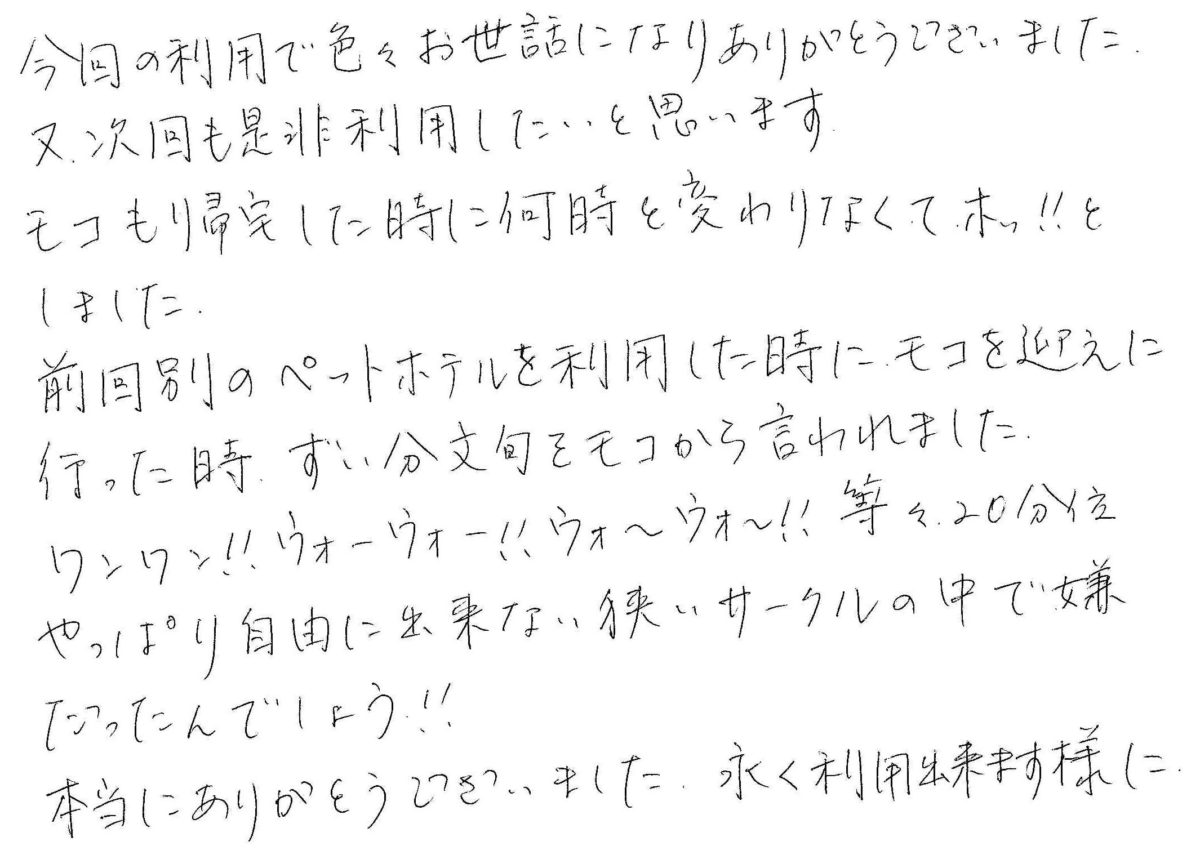 今回の利用で色々お世話になりありがとうございました.
又.次回も是非利用したいと思います.
モコもり帰宅した時に何時と変わりなくて.ホッ!!と
しました.
前回別のペットホテルを利用した時に.モコを迎えに
行った時.ずい分文句をモコから言われました.
ワンワン!!ウォーウォー!!ウォ〜ウォ〜!!等々.20分位
やっぱり自由に出来ない狭いサークルの中で嫌
だったんでしょう.!!
本当にありがとうございました.永く利用出来ます様に.